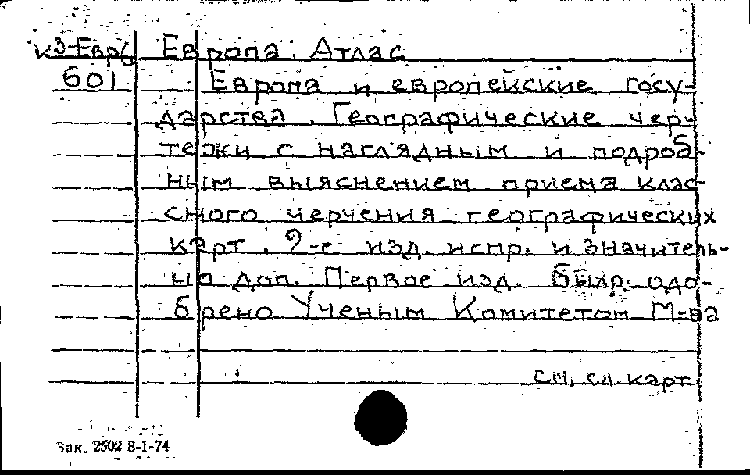 К3-Евр/5 Европа. Атлас
601 Европа и европейские госу-
дарства. Географические чер-
тежи с наглядным и подроб-
ным выяснением приема клас-
сного черчения географических
карт. 2-е изд. испр. и значитель-
но доп. Первое изд. было одо-
брено Ученым Комитетом М-ва
см. сл. карт
Зак. 2502 8-I-74